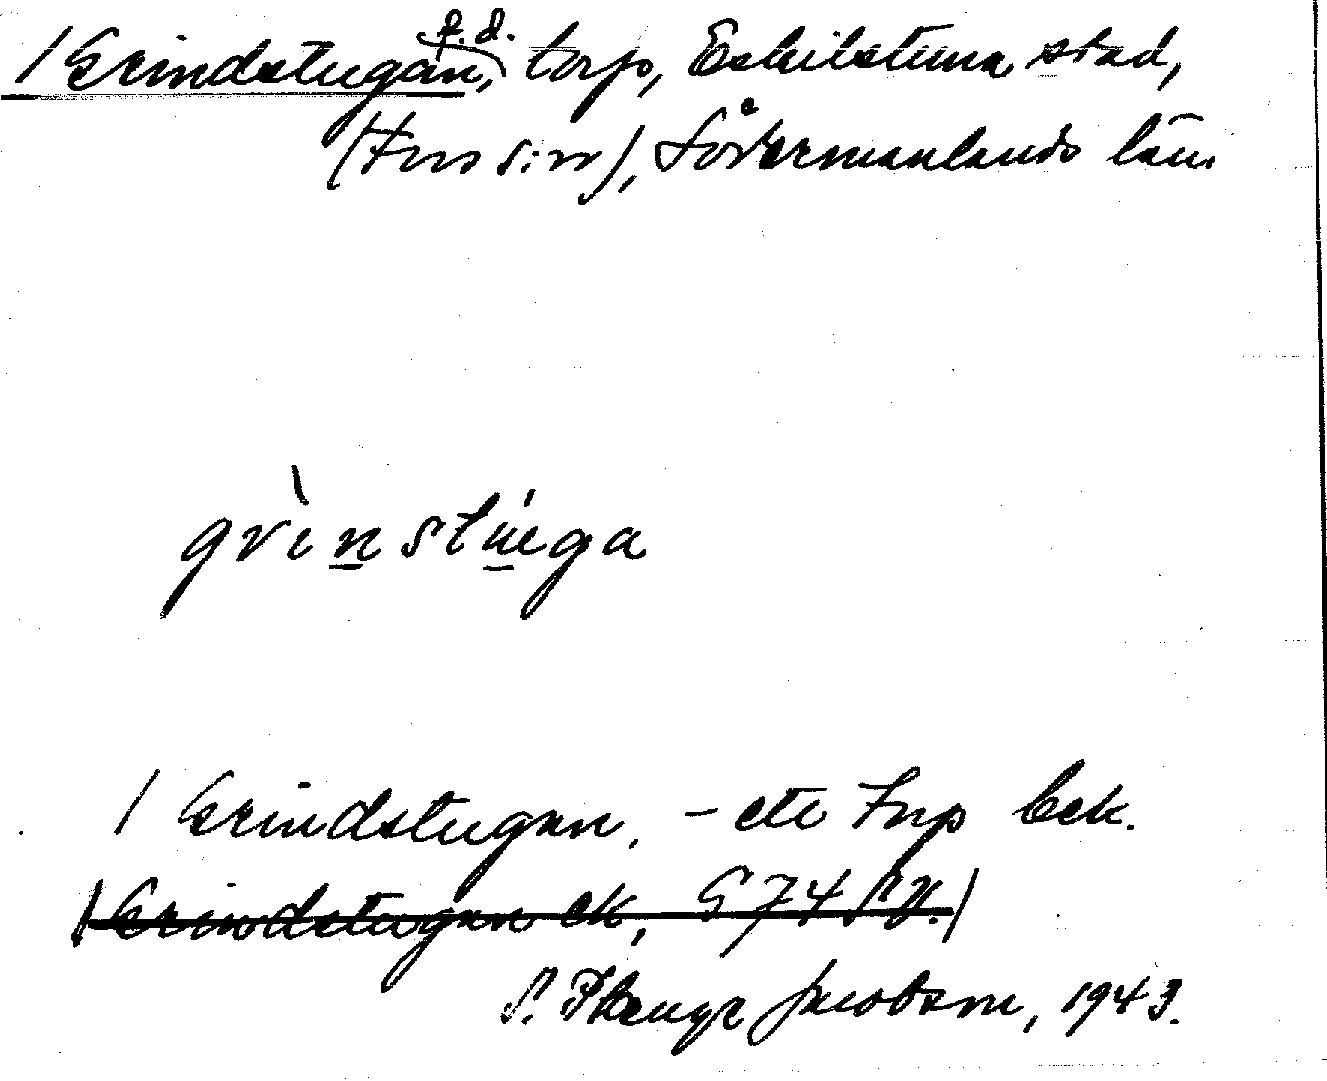 / Grindstugan, f.d. torp, Eskilstuna stad,
(Fors s:n), Södermanlands län.
grìnstúga
/ Grindstugan. – ett torp bek.
(Grindstugan ek, G 74 SV.)
Jacobson, 1943.